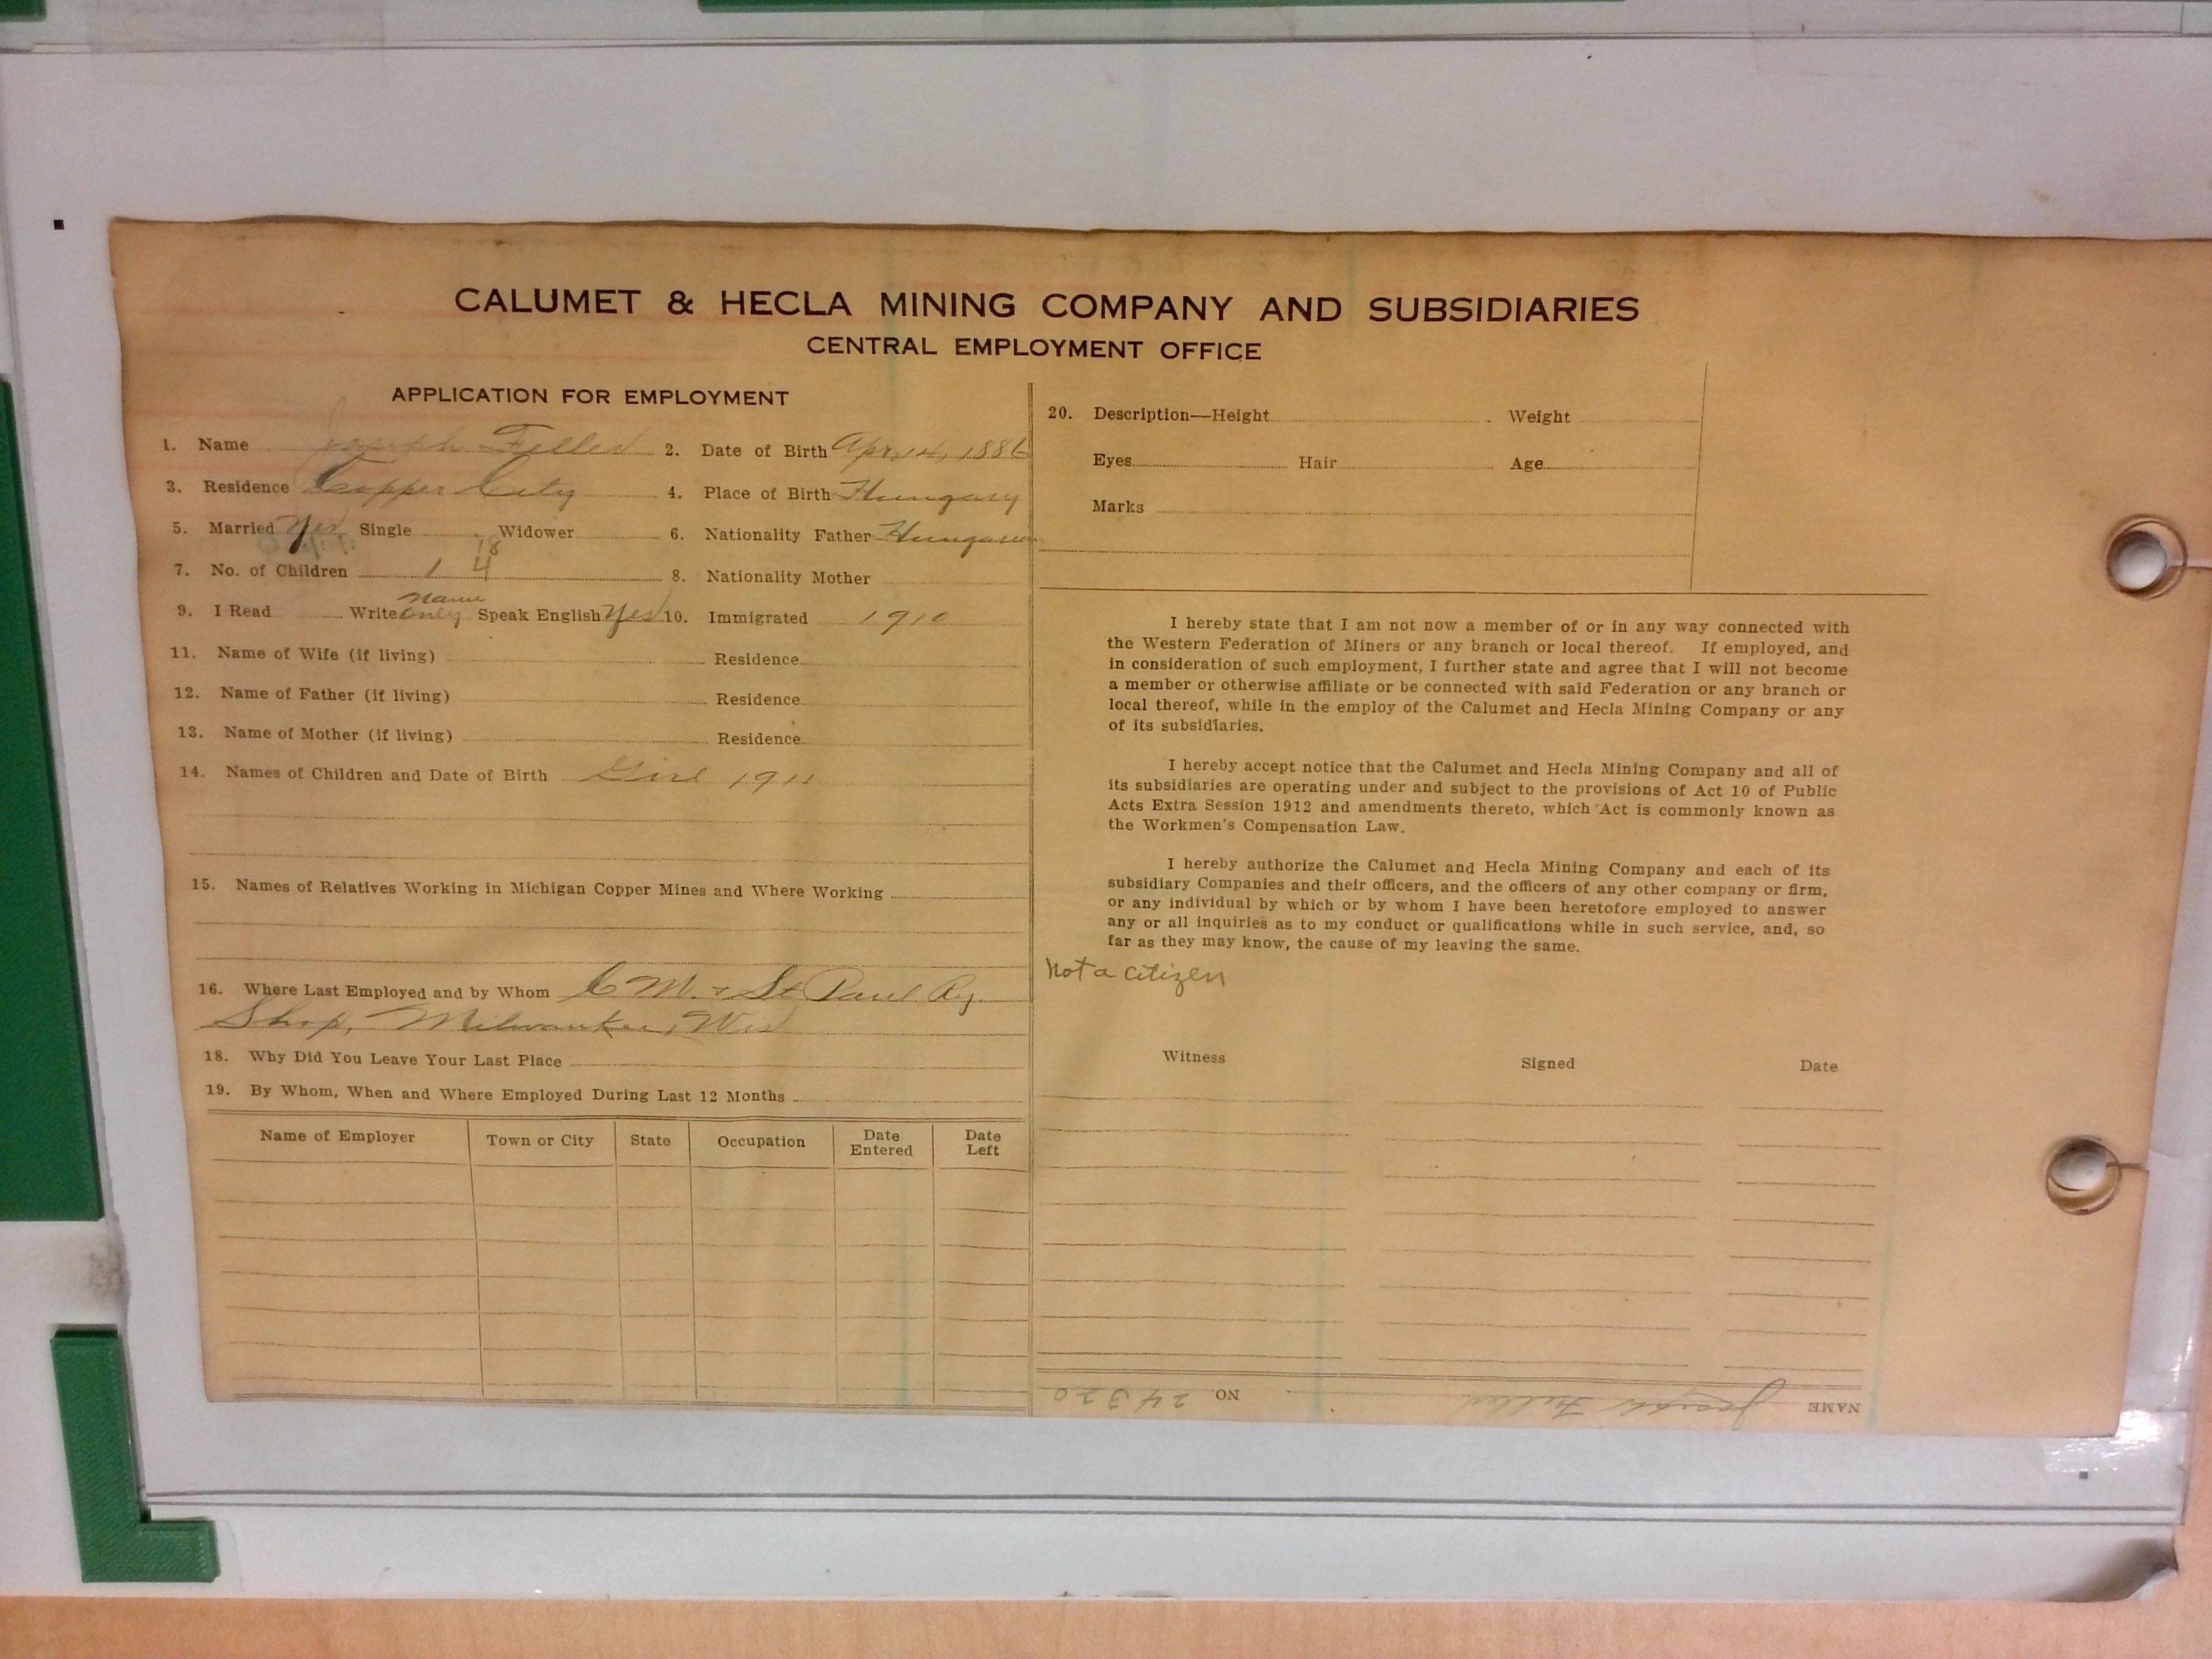 CALUMET & HECLA MINING COMPANY AND SUBSIDIARIES
CENTRAL EMPLOYMENT OFFICE
APPLICATION FOR EMPLOYMENT
1. Name Joseph 2. Date of Birth Apr. 14, 1886
3. Residence Copper City 4. Place of Birth Hungary
5. Married Yes Single Widower 6. Nationality Father Hungarian
18
7. No. of Children 1 4 8. Nationality Mother
name
9. I Read Write only Speak English Yes 10. Immigrated 1910
11. Name of Wife (if living) Residence
12. Name of Father (if living) Residence
13. Name of Mother (if living) Residence
14. Names of Children and Date of Birth Girl 1911
15. Names of Relatives Working in Michigan Copper Mines and Where Working
16. Where Last Employed and by Whom C M. & St Paul Ry.
Shop, Milwaukee, Wis
18. Why Did You Leave Your Last Place
19. By Whom, When and Where Employed During Last 12 Months
Name of Employer Town or City State Occupation Date Entered Date Left
20. Description—Height Weight
Eyes Hair Age
Marks
I hereby state that I am not now a member of or in any way connected with
the Western Federation of Miners or any branch or local thereof. If employed, and
in consideration of such employment, I further state and agree that I will not become
a member or otherwise affiliate or be connected with said Federation or any branch or
local thereof, while in the employ of the Calumet and Hecla Mining Company or any
of its subsidiaries.
I hereby accept notice that the Calumet and Hecla Mining Company and all of
its subsidiaries are operating under and subject to the provisions of Act 10 of Public
Acts Extra Session 1912 and amendments thereto, which Act is commonly known as
the Workmen's Compensation Law.
I hereby authorize the Calumet and Hecla Mining Company and each of its
subsidiary Companies and their officers, and the officers of any other company or firm,
or any individual by which or by whom I have been heretofore employed to answer
any or all inquiries as to my conduct or qualifications while in such service, and, so
far as they may know, the cause of my leaving the same.
Not a citizen
Witness Signed Date
NAME Joseph NO. 24320